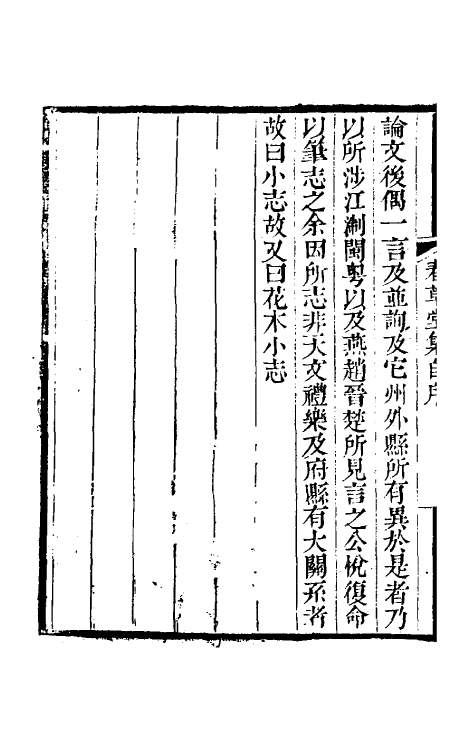 春草堂集自序
論文後偶一言及並詢及它州外縣所有異於是者乃
以所涉江淛閩粵以及燕趙晉楚所見言之公悅復命
以筆志之余因所志非天文禮樂及府縣有大關系者
故曰小志故又曰花木小志